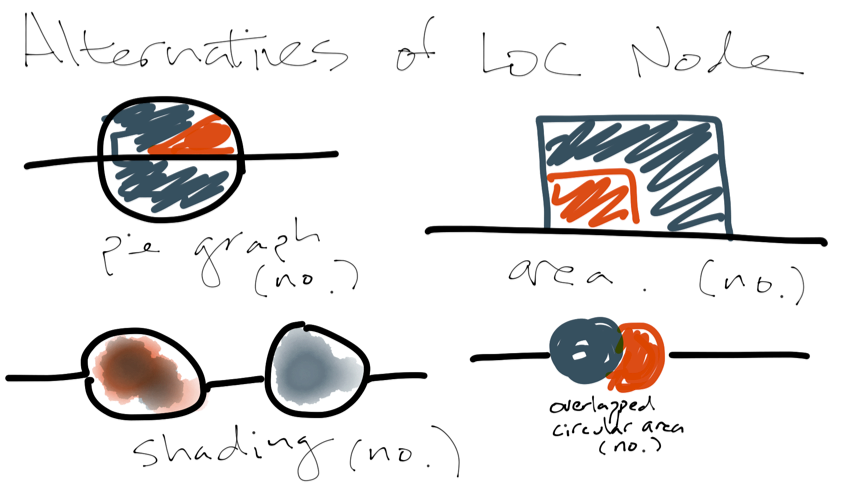 Alternatives of LOC Node
pie graph
(no.)
area. (no.)
shading (no.)
overlapped
circular area
(no.)